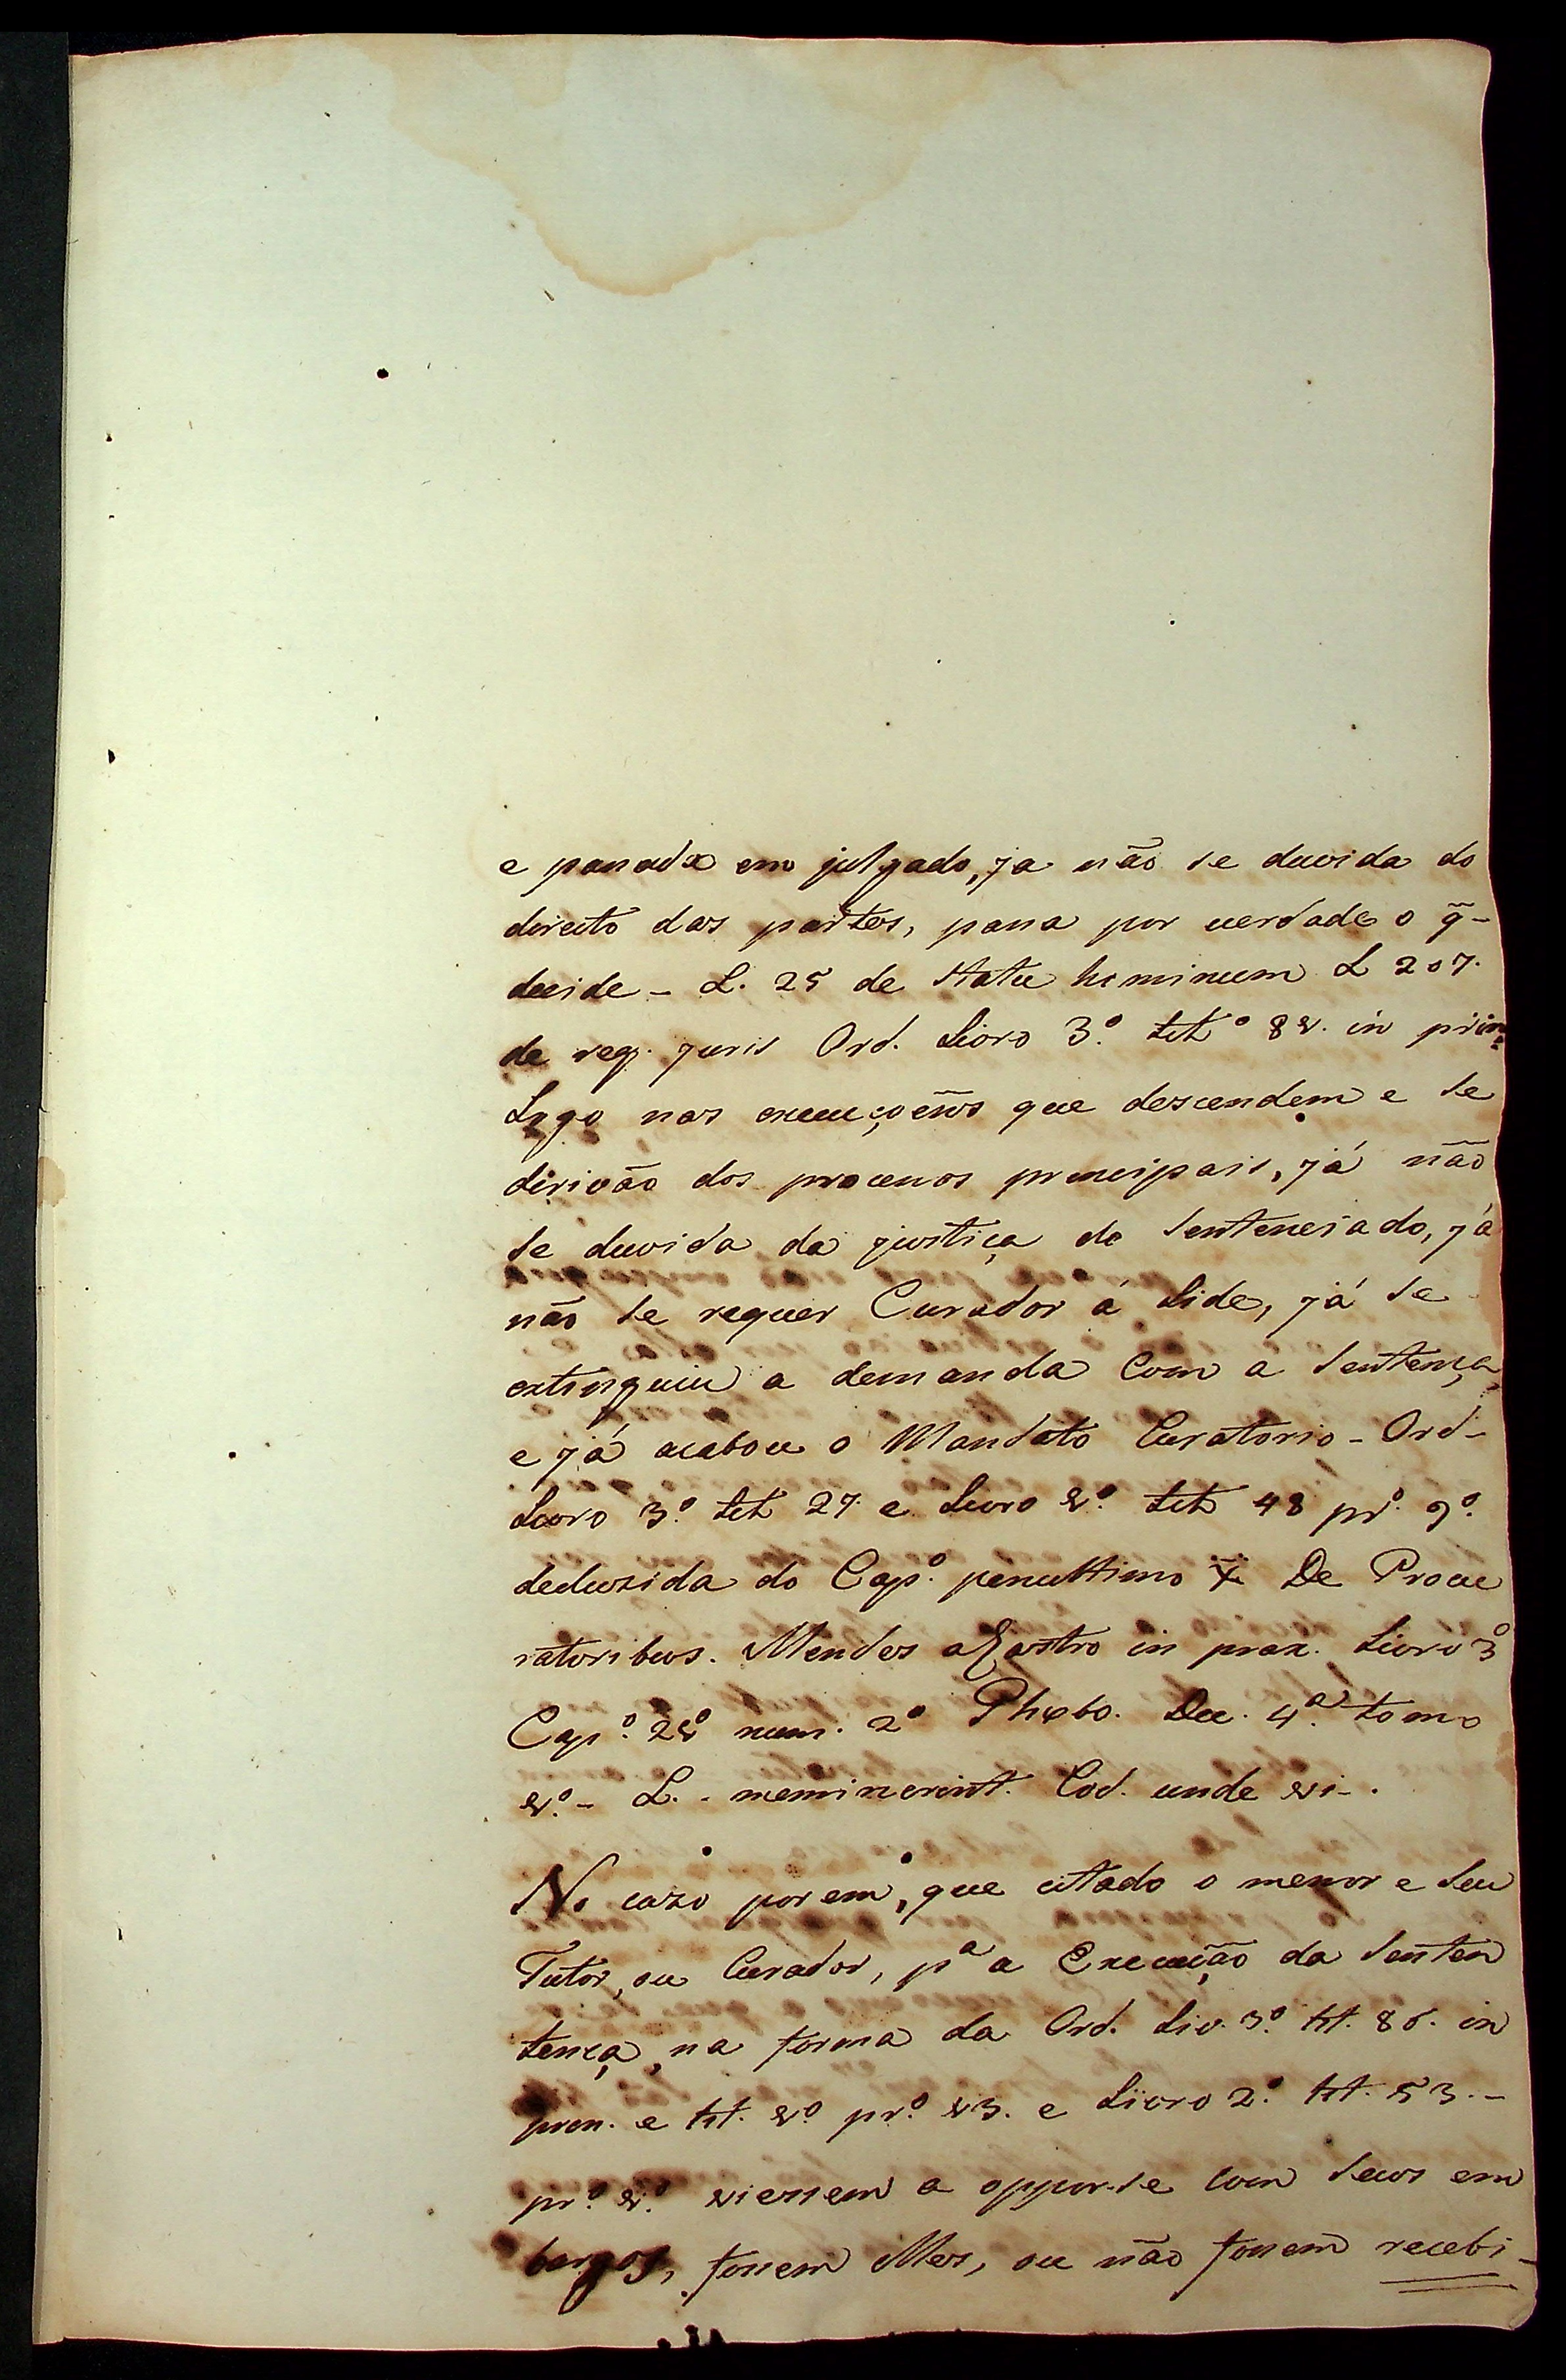 e passada em julgado, ja não se duvida do
direito das partes, passa por verdade o q̃-
decide - L. 25 de Statu hominum L 207.
de reg. juris Ord. Livro 3.º tit.º 81. in prin
Logo nas execuçoẽns que descendem e se
dirivão dos processos principais, já não
se duvida da justiça do Sentenciado, já
não se requer Curador á Lide, já se
extinguiu a demanda Com a Sentença,
e já acabou o Mandato Curatorio - Ord-
Livro 3.º tit 27 e Livro 1.º tit 48 pr.º 9.º
deduzida do Cap.º penultimo De Procu
ratoribus. Mendes a Castro in prax. Livro 3º
Cap.º 21º num. 2º Phebo. Dec. 4.ª tomo
1.º - L. - meminerint. Cod. unde vi - .
No cazo porem, que citado o menor e Seu
Tutor, ou Curador, pª a Execução da Senten
tença, na forma da Ord. Liv. 3.º tit. 86. in
pren. e tit. 1.º pr.º 13. e Livro 2.º tit. 53. -
pr.º 1.º viessem a oppor-se com Seus em
bargos, fossem elles, ou não fossem recebi-